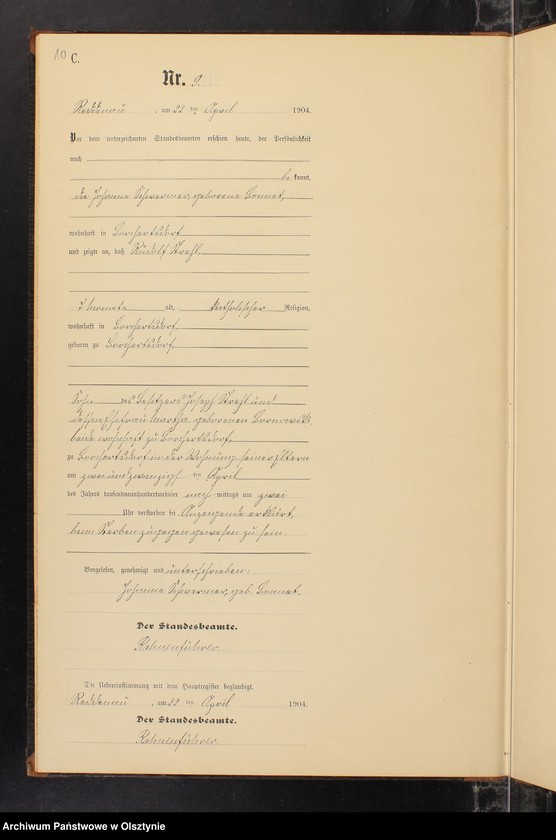 10 C.
Nr. 9.
Reddenau, am 22 ten April 1904.
Vor dem unterzeichneten Standesbeamten erschien heute, der Persönlichkeit
nach
bekannt,
die Johanne Schwermer, geborene Bonnet,
wohnhaft in Borchertsdorf
und zeigte an, daß Rudolf Strehl,
7 Monate alt, katholischer Religion,
wohnhaft in Borchertsdorf,
geboren zu Borchertsdorf,
Sohn des Besitzers Joseph Strehl und
dessen Ehefrau Martha, geborenen
beide wohnhaft zu Borchertsdorf,
zu Borchertsdorf in der Wohnung seiner Eltern
am zweiundzwanzigsten April
des Jahres tausendneunhundertundvier nachmittags um zwei
Uhr verstorben sei. Anzeigende erklärt,
beim Sterben zugegen gewesen zu sein.
Vorgelesen, genehmigt und unterschrieben:
Johanne Schwermer, geb. Bonnet.
Der Standesbeamte.
Die Uebereinstimmung mit dem Hauptregister beglaubigt.
Reddenau, am 22 ten April 1904.
Der Standesbeamte.
Archiwum Państwowe w Olsztynie